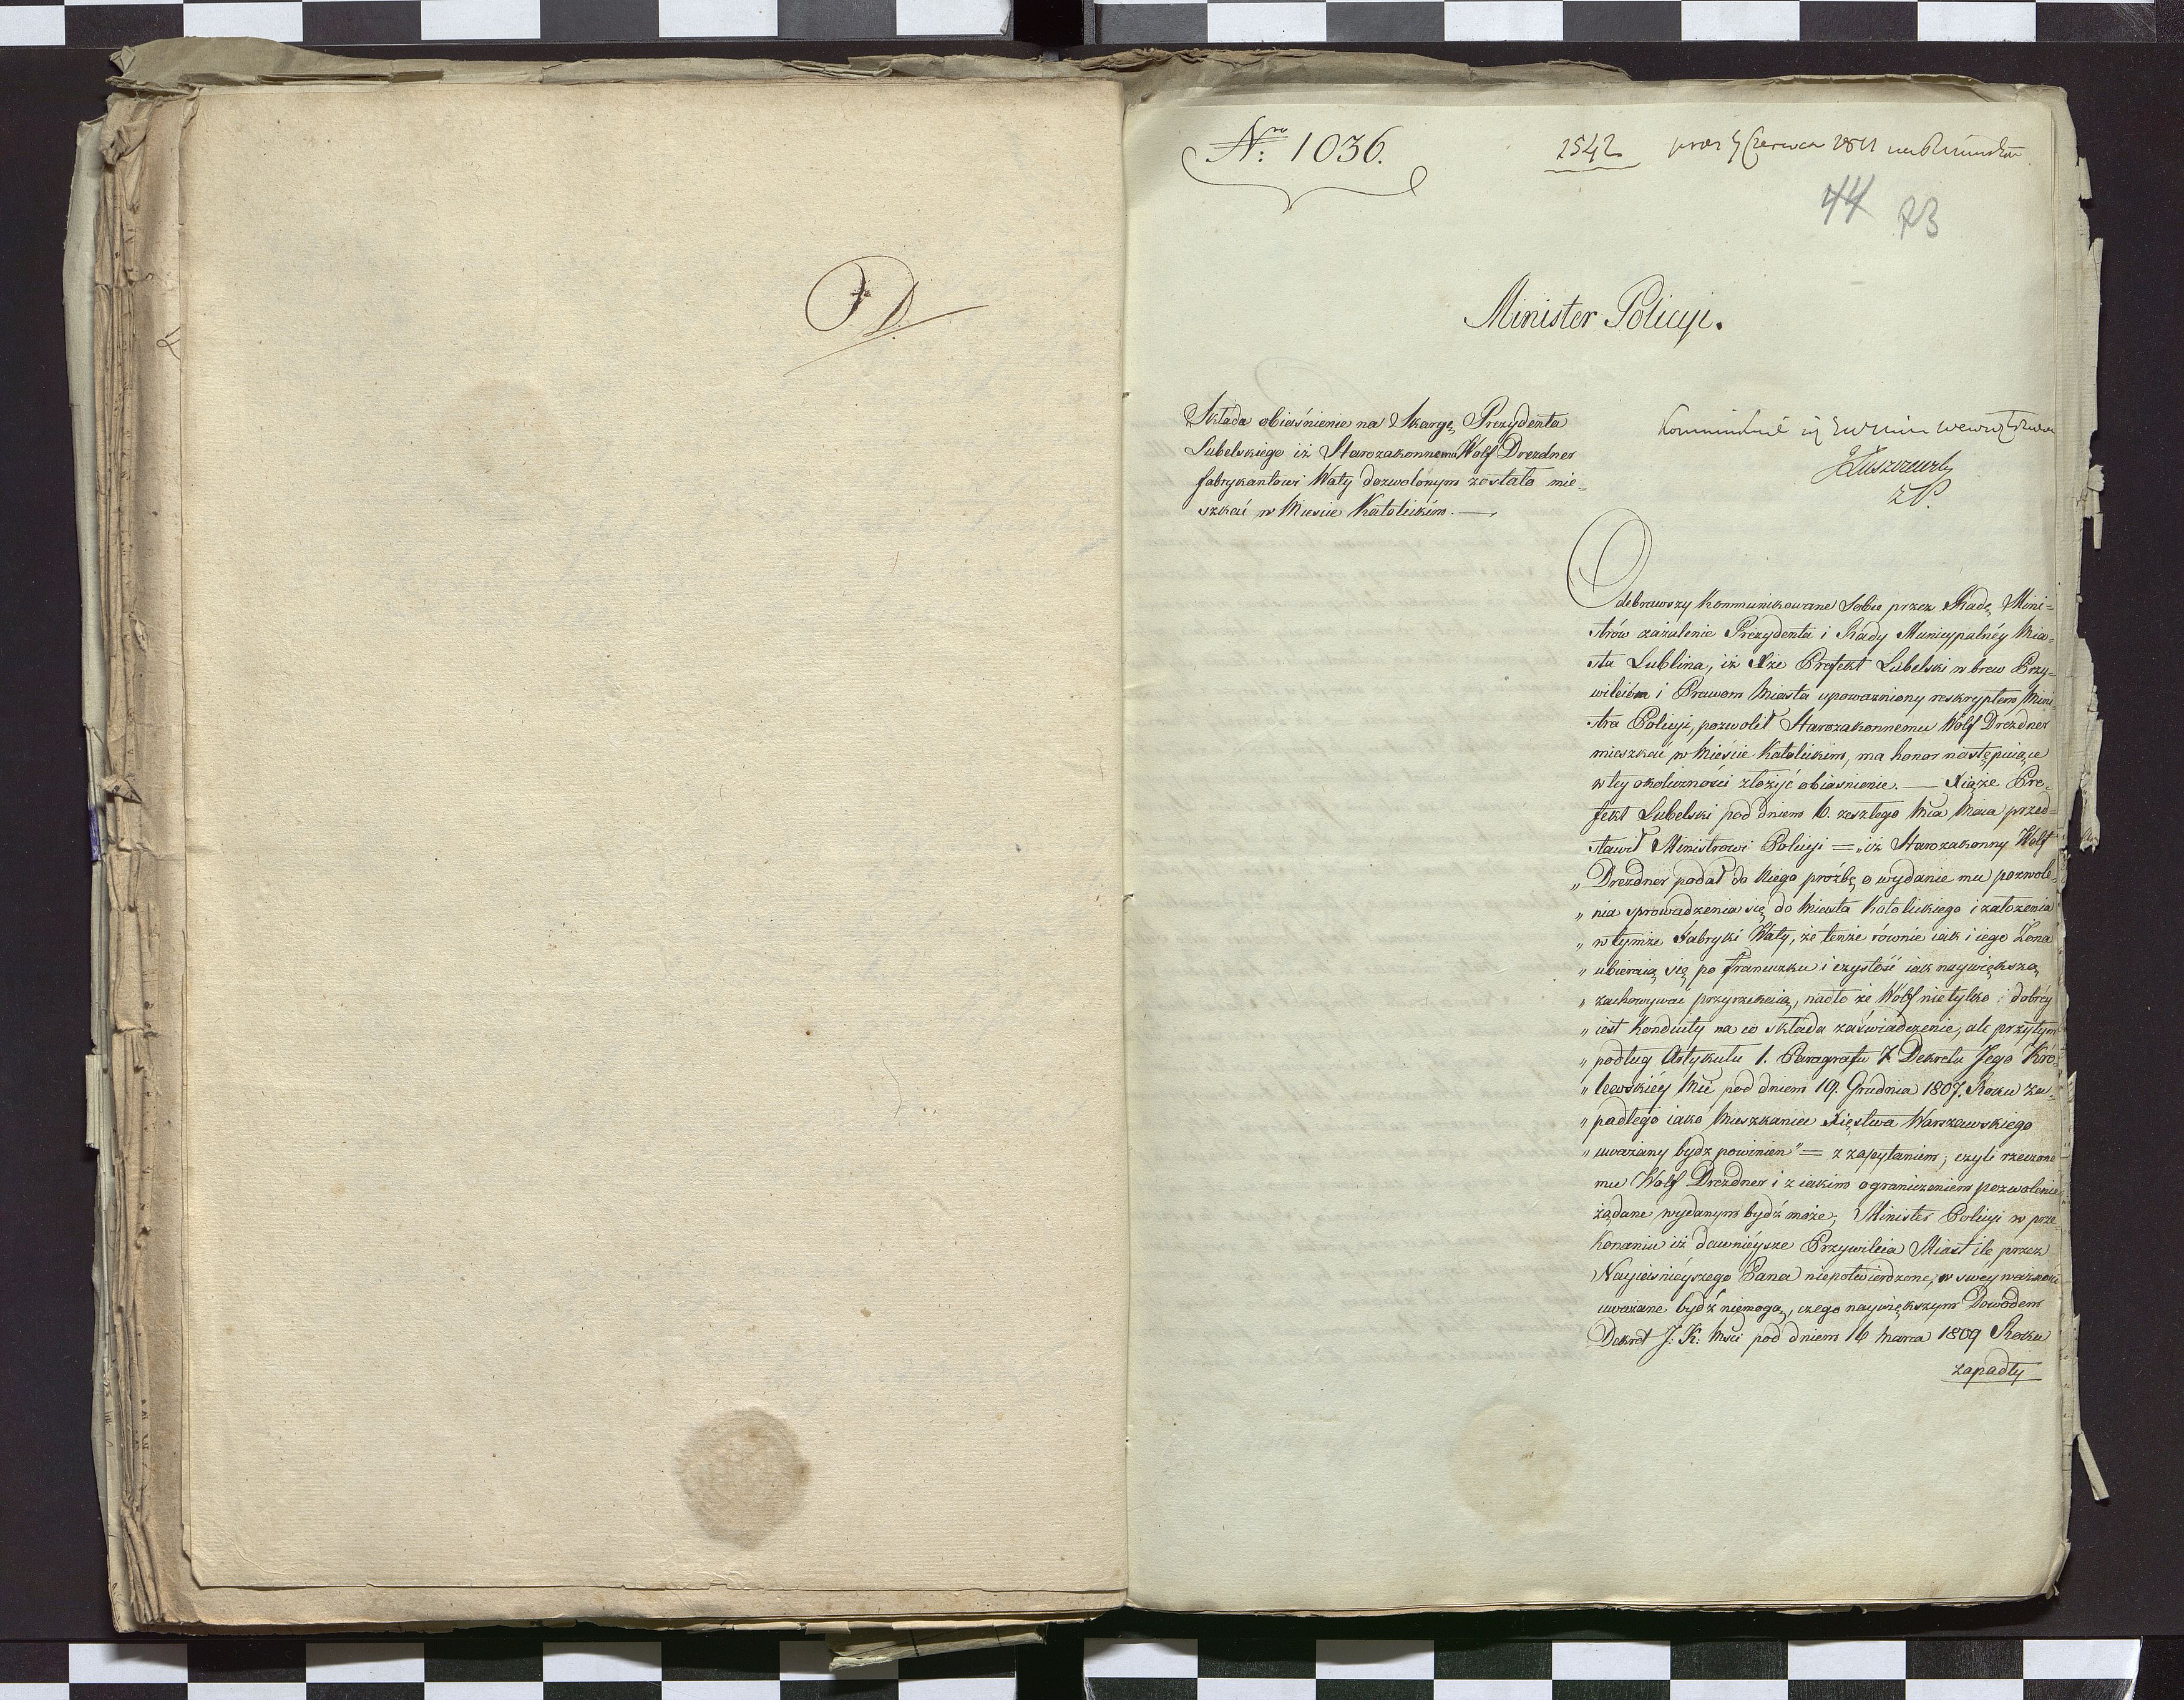 D.
Nro: 1036.
2542 Czerwca 1811
44 73
Minister Policyi.
Składa obiaśnienie na Skargę Prezydenta
Lubelskiego iż Starozakonnemu Wolf Drezdner
fabrykantowi Waty dozwolonym zostało mie=
szkać w Mieście Katolickim. —
Łuszczewski
Odebrawszy kommunikowane Sobie przez Radę Mini=
strów zażalenie Prezydenta i Rady Municypalnéy Mia=
sta Lublina, iż Xże Prefekt Lubelski w brew Przy=
wileiom i Prawom Miasta upoważniony reskryptem Mini=
stra Policyi, pozwolił Starozakonnemu Wolf Drezdner
mieszkać w Mieście Katolickim, ma honor następuiące
w tey okoliczności złożyć obiaśnienie. — Xiąże Pre=
fekt Lubelski pod dniem 6. zeszłego Mca Maia przed=
stawił Ministrowi Policyi = „iż Starozakonny Wolf
„ Drezdner podał do Niego prozbę o wydanie mu pozwole=
„ nia sprowadzenia się do Miasta Katolickiego i założenia
„ w tymże Fabryki Waty, że tenże równie iak i iego Żona
„ ubieraią się po francuzku i czystość iak naywiększą
„ zachowywać przyrzekaią, nadto że Wolf nie tylko dobréy
„ iest Konduity na co składa zaświadczenie, ale przytym
„ podług Artykułu 1. Paragrafu 7. Dekretu Jego Kró=
„ lewskiéy Mci pod dniem 19. Grudnia 1807. Roku za=
„ padłego iako Mieszkaniec Xięstwa Warszawskiego
„ uważany bydz powinien" = z zapytaniem; czyli rzeczone=
mu Wolf Drezdner i z iakim ograniczeniem pozwolenie
żądane wydanym bydź może; Minister Policyi w prze=
konaniu iż dawnieysze Przywileia Miast ile przez
Nayiaśnieyszego Pana niepotwierdzone, w swey ważności
uważane bydź niemogą, czego naywiększym Dowodem
Dekret J: K: Mści pod dniem 16 Marca 1809 Roku
zapadły